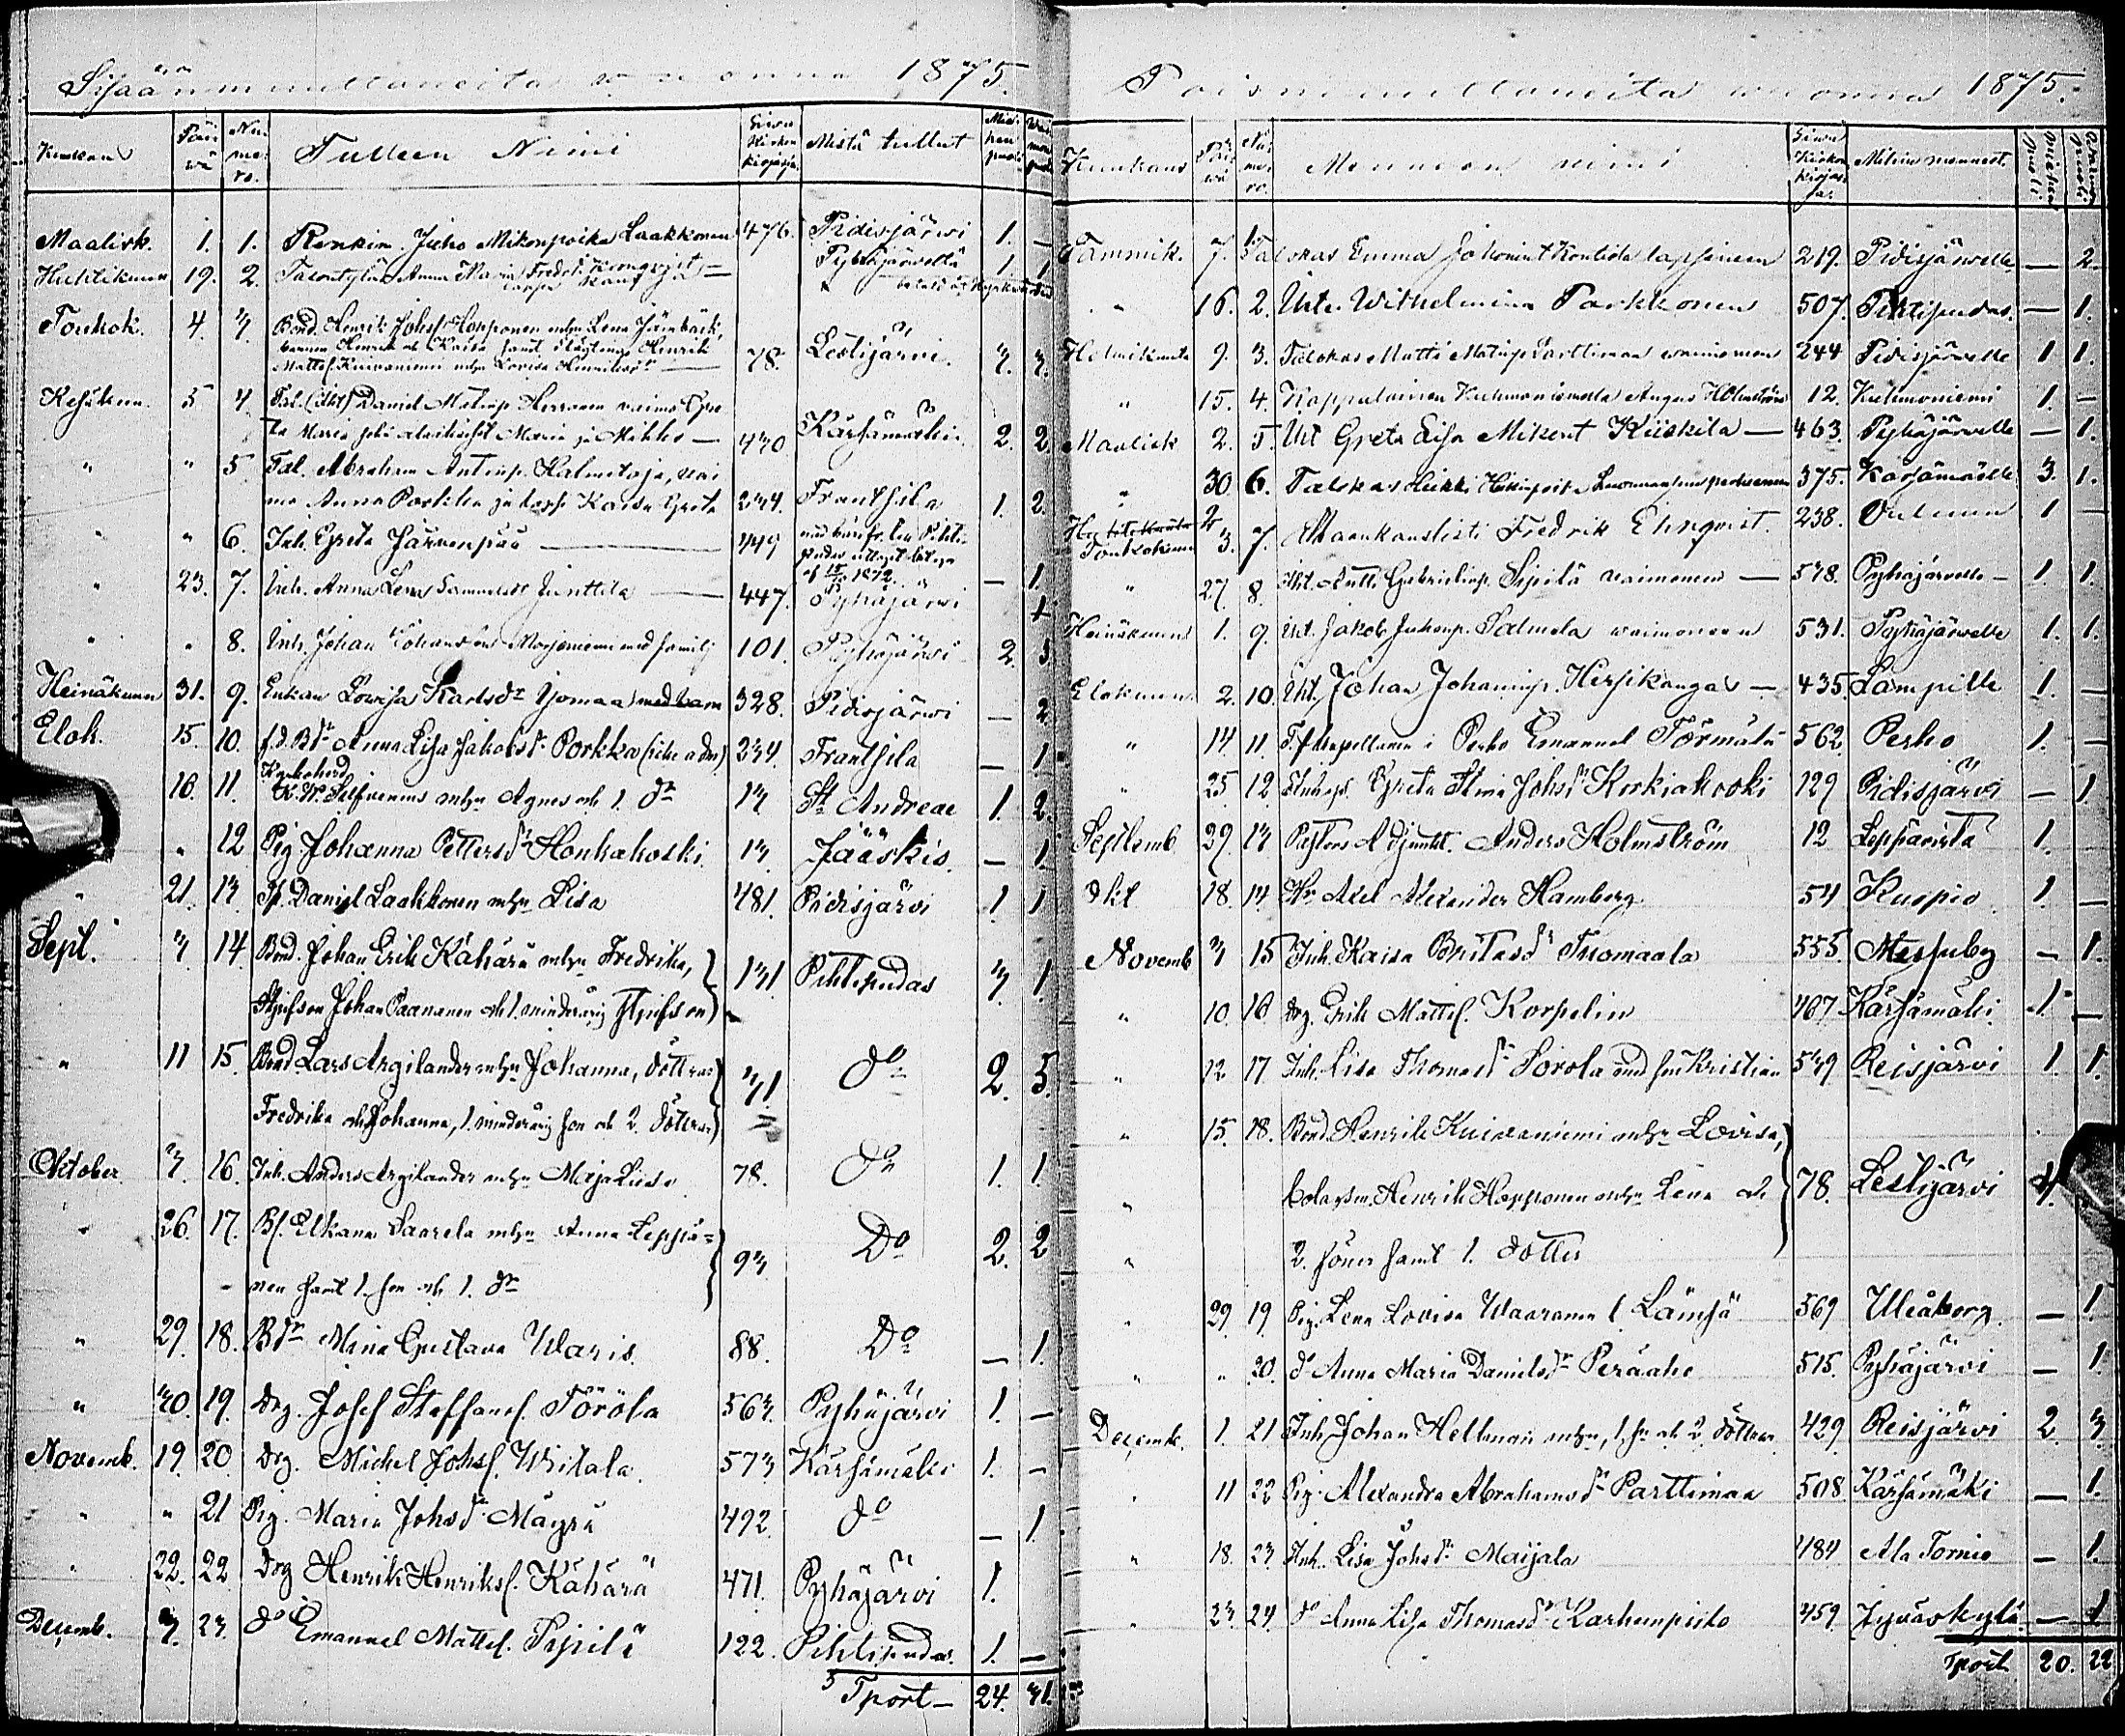 Sisäänmuuttaneita wuonna 1875.
Kuukaus Päiwä Numero. Tulleen Nimi Siwu Kirkonkirjassa Mistä tullut Miehenpuoli Waimonpuoli
Maalisk. 1. 1. Renkin Juho Mikonpoika Laakkonen 476. Pidisjärwi 1. —
Huhtikuun 19. 2. Anna Maria Fredr. Kronqvist — Pyhäjärweltä 1. 1
Toukok. 4. 3. Bond. Henrik Johs. Hopponen m. hu. Lena Jämbäck,
barnen Henrik och Kaisa samt Henrik
Matts. Kuiwaniemi m. hu. Lovisa Henriksdr — 78. Lestijärvi. 3. 3.
Kesäkuun 5 4 Tal. Daniel Matinp. Herranen waimo Gre
ta Maria Maria ja Mikko — 430 Kärsämäki. 2. 2
" " 5 Tal. Abraham Antinp. Halmetoja, wai
mo Anna Porkka ja laps. Kaisa Greta 234. Frantsila 1. 2.
" " 6. Inh. Greta Järvenpää — 449
af 15/10 1872. — 1
" 23. 7. Inh. Anna Lena Samuelsdr Junttila — 447. Pyhäjärwi +
" " 8. Inh. Johan Johansson Marjoniemi med familj 101. Pyhäjärwi 2. 3
Heinäkuun 31. 9. Enkan Lowisa Karlsdr Yjomaa med barn 328. Pidisjärwi — 2
Elok. 15. 10. f.d. Bdr Anna Lisa Jakobsdr Porkka 234. Frantsila — 1
Kyrkoherd
16. 11. K. W. Selfvenius m. hu. Agnes och 1. dr 13 St Andreae 1. 2.
" 12 Pig Johanna Pettersdr Honkakoski 13 Jääskis. — 1
" 21. 13. Daniel Laakkonen m. hu. Lisa 481. Pidisjärvi 1. 1
Sept. 3 14 Bond. Johan Erik Kähärä m. hu. Fredrika,
Styfson Johan Paananen och 1. minderårig styfson 131 Pihtipudas 3. 1.
" 11 15. Bond. Lars Argilander m. hu. Johanna, döttrar
Fredrika och Johanna, 1. minderårig son och 2. döttrar 31 do 2. 5.
Oktober. 3. 16. Inh. Anders Argilander m. hu. Maja Lisa 78. do 1. 1.
" 26. 17. Bs. Elkana Saarela m. hu. Anna Leppä=
nen samt 1. son och 1. dr 93 Do 2. 2
" 29. 18. Bdr Mina Gustava Waris 88. Do — 1.
" 30. 19. Drg. Josef Staffans. Töröla 563. Pyhäjärvi 1. —
Novemb. 19. 20. Drg. Michel Johs. Witala. 573 Kärsämäki 1. —
" " 21 Pig. Maria Johsdr Mäyrä 492. do — 1.
" 22. 22 Drg Henrik Henriks. Kähärä 471. Pyhäjärvi 1.
Decemb. 3. 23. do Emanuel Matts. Pipilä 122. Pihtipudas. 1. —
Tport — 24. 31.
Poismuuttaneita wuonna 1875.
Kuukaus Päiwä Numero. Mennen nimi Siwu Kirkonkirjassa. Mihin mennest. Miehenpuoli. Waimonpuoli.
Tammik. 7. 1. Talokas Emma Jakonint Kontiola lapsineen 219. Pidisjärwelle — 2.
" 16. 2. Itste. Wilhelmina Parkkonen 507. Pihtipudas. — 1.
Helmikuuta 9. 3. Talokas Matti Matinp. Parttimaa waimoneen 244 Pidisjärwelle 1 1.
" 15. 4. Kappalainen Kuhmoniemellä August Holmström 12. Kuhmoniemi 1. —
Maalisk 2. 5. Itst Greta Lisa Mikont Kiiskilä — 463. Pyhäjärwelle — 1.
" 30. 6. Talokas Heikki Heikinpoika perheineen 375. Kärsämäelle 3. 1.
Toukokuun 3. 7. Maankauslisti Fredrik Ehnqvist 238. Ouluun 1 —
" 27. 8. Itst. Antti Gabrielinp. Sipilä waimoneen — 578. Pyhäjärwelle — 1. 1.
Heinäkuun 1. 9. Itst. Jakob Juhonp. Salmela waimoneen 531. Pyhäjärwelle 1. 1.
Elokuun 2. 10. Itst. Johan Johaninp. Hirsikangas — 435. Lampille 1. —
" 14 11. T.f. kapellanen i Perho Emanuel Törmälä 562. Perho 1. —
" 25. 12 Greta Stina Johsdr Korkiakoski 129 Pidisjärvi — 1.
Septemb 29. 13 Pastors Adjunkt. Anders Holmström 12 Leppävirta 1.
Okt 18. 14. Hr. Axel Alexander Hamberg 54 Kuopio 1. —
Novemb 3 15 Inh. Kaisa Britasdr Tuomaala 555. Messuby — 1.
" 10. 16. Drg. Erik Matts. Korpelin 467 Kärsämäki. 1. —
" 12 17 Inh. Lisa Thomasdr Sorola med son Kristian 549 Reisjärvi 1. 1.
" 15. 18. Bond. Henrik Kuivaniemi m. hu. Lovisa,
" Bolagsm. Henrik Hopponen m. hu. Lena och 78. Lestijärvi 4.
" 2. söner samt 1. dotter
" 29. 19. Pig. Lena Lovisa Waaranen l. Lämsä 569 Uleåborg. — 1.
" " 20. do Anna Maria Danielsdr Peräaho 515. Pyhäjärvi — 1.
Decemb. 1. 21 Inh. Johan Hellman m. hu., 1. son och 2. döttrar 429 Reisjärvi 2. 3.
" 11 22 Pig. Alexandra Abrahamsdr Parttimaa 508. Kärsämäki — 1.
" 18. 23 Inh. Lisa Johsdr Maijala 484 Ala Tornio — 1.
" 23. 24. do Anna Lisa Thomasdr Karhunpisto 459 Jyväskylä — 1
Tport 20. 22